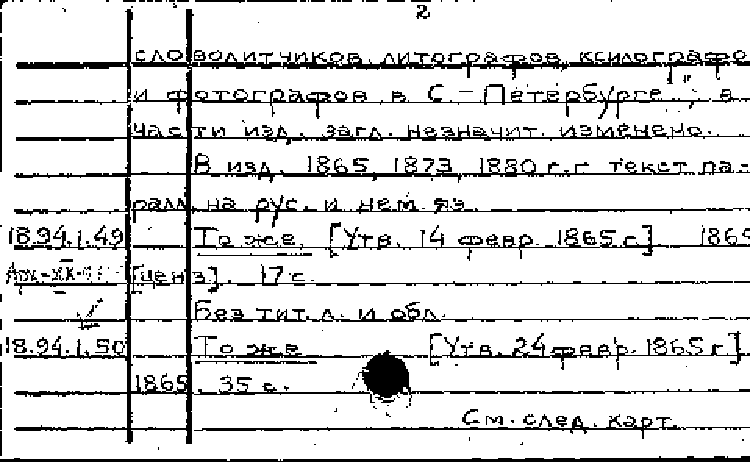 2
словолитчиков, литографов, ксилографо
и фотографов в С.-Петербурге"; в
части изд. загл. незначит. изменено.
В изд. 1865, 1873, 1880 г.г. текст па-
ралл. на рус. и нем. яз.
18.94.1.49 То же. [Утв. 14 февр. 1865 г.] 1865
[ценз]. 17 с.
Без тит. л. и обл.
18.94.1.50 То же [Утв. 24 февр. 1865 г.].
1865. 35 с.
См. след. карт.